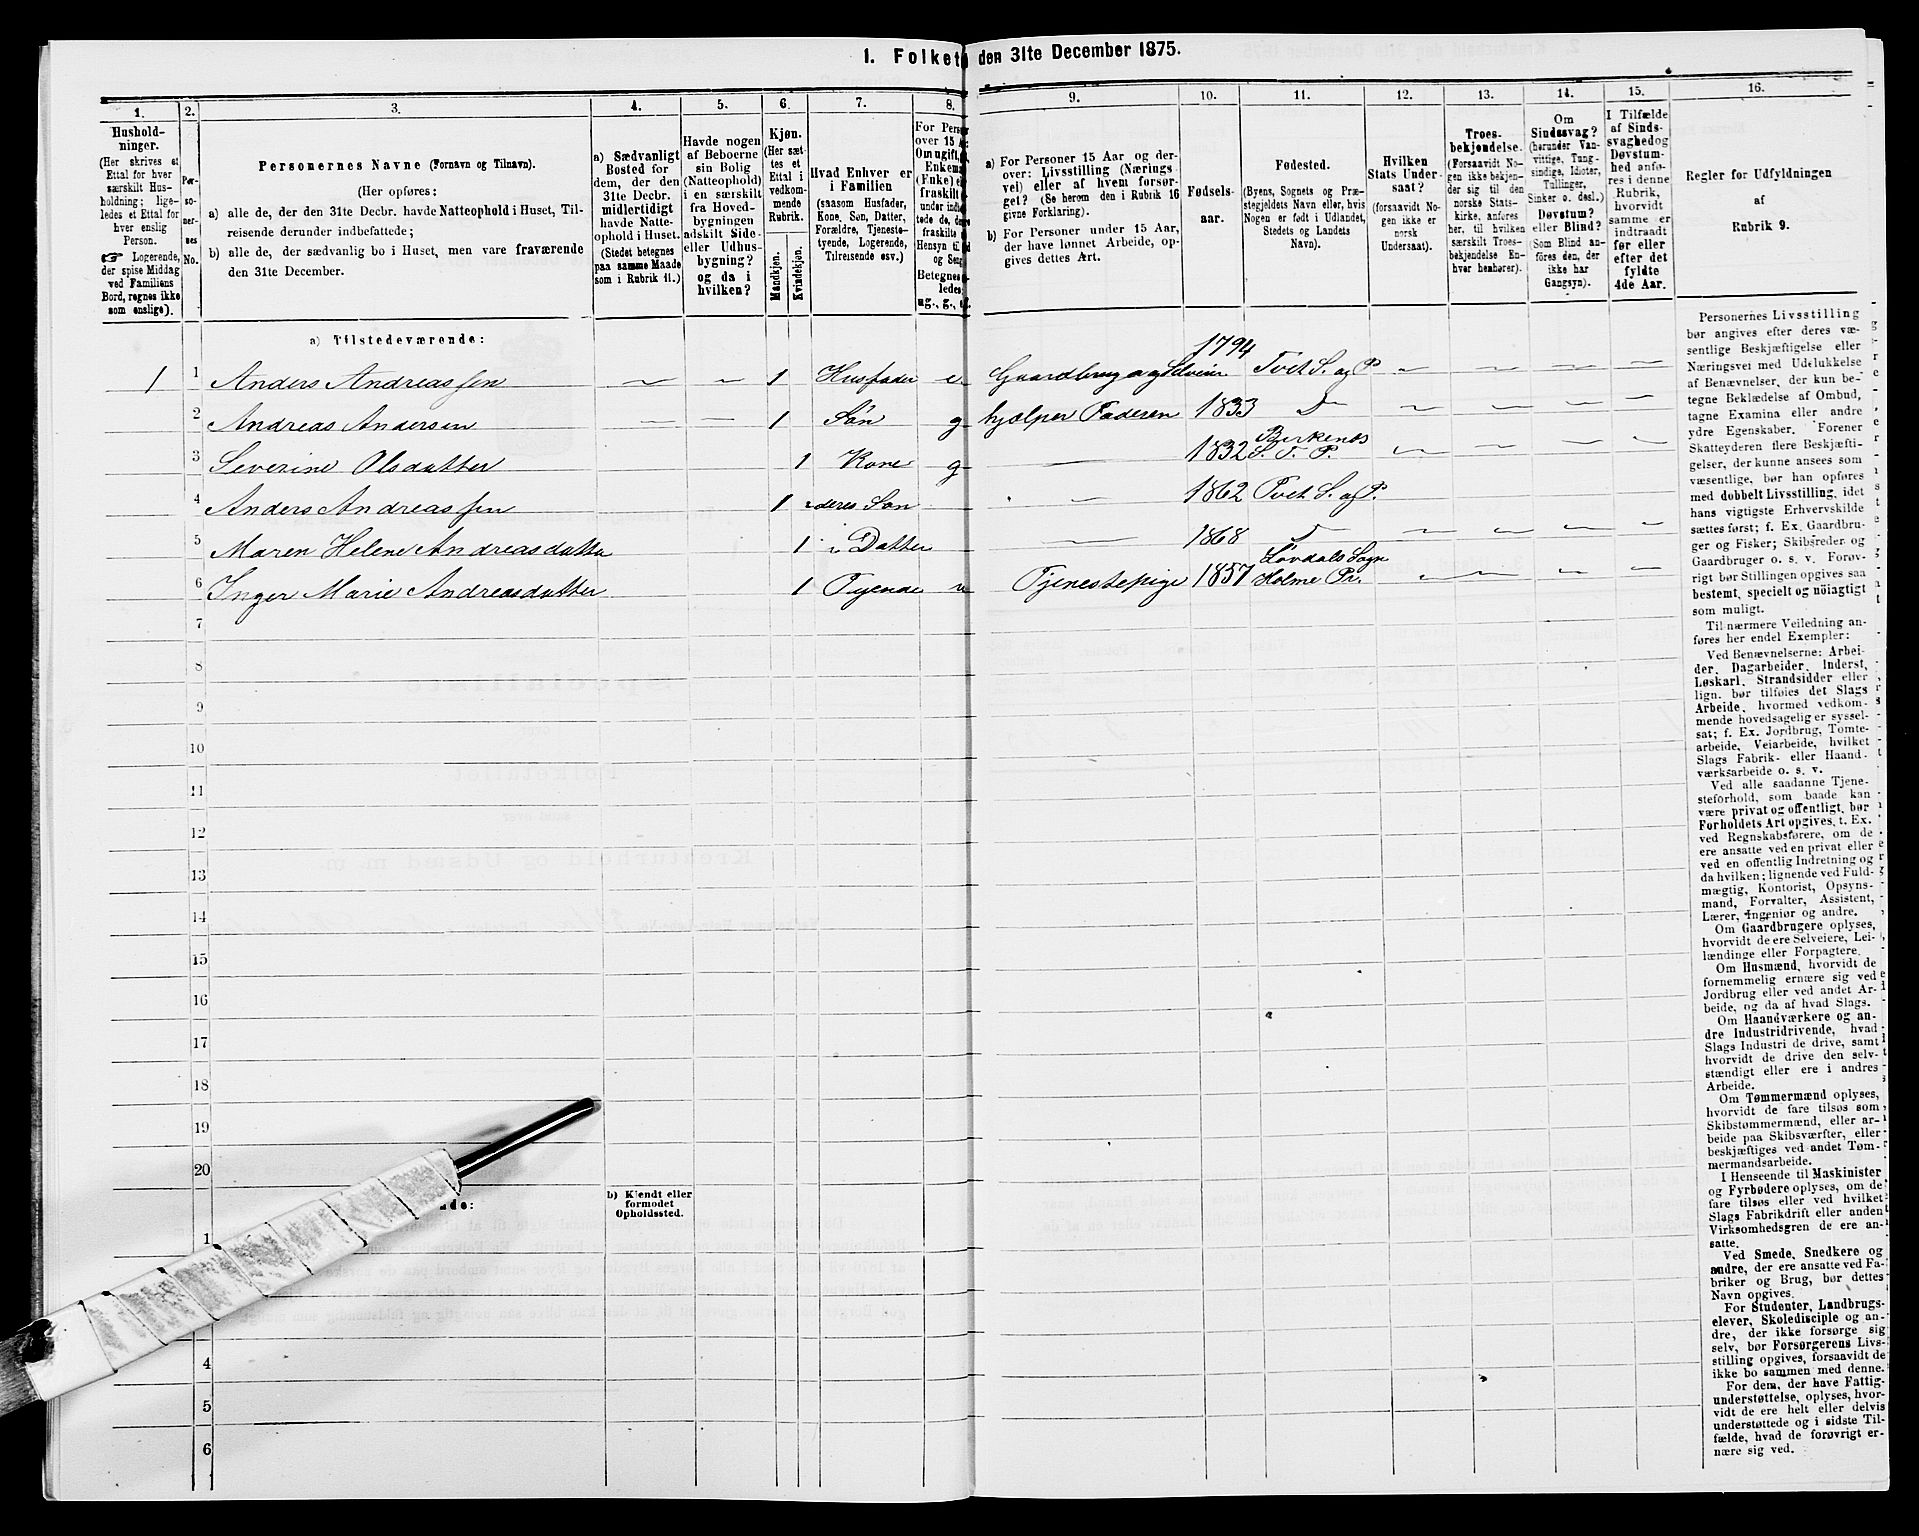 1. Folket den 31te December 1875.
1.
Hushold-
ninger.
(Her skrives et
Ettal for hver
særskilt Hus-
holdning; lige-
ledes et Ettal for
hver enslig
Person.
☞ Logerende,
der spise Middag
ved Familiens
Bord, regnes ikke
som enslige).
2.
Per-
soner-
nes
No.
3.
Personernes Navne (Fornavn og Tilnavn).
(Her opføres:
a) alle de, der den 31te Decbr. havde Natteophold i Huset, Til-
reisende derunder indbefattede;
b) alle de, der sædvanlig bo i Huset, men vare fraværende
den 31te December.
4.
a) Sædvanligt
Bosted for
dem, der den
31te Decbr.
midlertidigt
havde Natte-
ophold i Huset.
(Stedet betegnes
paa samme Maade
som i Rubrik 11.)
5.
Havde nogen
af Beboerne
sin Bolig
(Natteophold)
i en særskilt
fra Hoved-
bygningen
adskilt Side-
eller Udhus-
bygning?
og da i
hvilken?
6.
Kjøn.
(Her sæt-
tes et
Ettal i
vedkom-
mende
Rubrik.
Mandkjøn.
Kvindekjøn.
7.
Hvad Enhver er
i Familien
(saasom Husfader,
Kone, Søn, Datter,
Forældre, Tjeneste-
tyende, Logerende,
Tilreisende osv.)
8.
For Person
over 15 A
Om ugift,
Enkema
(Fuke) el
fraskilt
under indbe
tede de, de
fraskilte
Hensyn til
og Seng
Betegnes
ledes:
ug., g., e
9.
a) For Personer 15 Aar og der-
over: Livsstilling (Nærings-
vei) eller af hvem forsør-
get? (Se herom den i Rubrik 16
givne Forklaring).
b) For Personer under 15 Aar,
der have lønnet Arbeide, op-
gives dettes Art.
10.
Fødsels-
aar.
11.
Fødested.
(Byens, Sognets og Præ-
stegjeldets Navn eller, hvis
Nogen er født i Udlandet,
Stedets og Landets
Navn).
12.
Hvilken
Stats Under-
saat?
(forsaavidt No-
gen ikke er
norsk
Undersaat).
13.
Troes-
bekjendelse.
(Forsaavidt No-
gen ikke bekjen-
der sig til den
norske Stats-
kirke, anføres
her, til hvilken
særskilt Troes-
bekjendelse En-
hver henhører).
14.
Om
Sindssvag?
(herunder Van-
vittige, Tung-
sindige, Idioter,
Tullinger,
Sinker o. desl.)
Døvstum?
eller Blind?
(Som Blind an-
føres den, der
ikke har
Gangsyn).
15.
I Tilfælde
af Sinds-
svaghed og
Døvstum-
hed anfø-
res i denne
Rubrik,
hvorvidt
samme er
indtraadt
før eller
efter det
fyldte
4de Aar.
16.
Regler for Udfyldningen
af
Rubrik 9.
a) Tilstedeværende:
1 1 Anders Andreassen — — 1 Husfader e Gaardbruger og Selveier 1794 Tvet S. og P — — — —
2 Andreas Andersen — — 1 Søn g hjælper Faderen 1833 D — — — —
3 Severine Olsdatter 1 Kone g — 1832 Birkenes S. & P. — — — —
4 Anders Andreassen 1 deres Søn — 1862 Tvet S. og P.
5 Maren Helene Andreasdatter 1 Datter — 1868 — — — —
6 Inger Marie Andreasdatter 1 Tyende Tjenestepige 1857 Sogn Holme Pr. — — — —
7
8
9
10
11
12
13
14
15
16
17
18
19
20
de:
b) Kjendt eller
formodet
Opholdssted.
1
4
5
6
Personernes Livsstilling
bør angives efter deres væ-
sentlige Beskjæftigelse eller
Næringsvei med Udelukkelse
af Benævnelser, der kun be-
tegne Beklædelse af Ombud,
tagne Examina eller andre
ydre Egenskaber. Forener
Skatteyderen flere Beskjæfti-
gelser, der kunne ansees som
væsentlige, bør han opføres
med dobbelt Livsstilling, idet
hans vigtigste Erhvervskilde
sættes først; f. Ex. Gaardbru-
ger og Fisker; Skibsreder og
Gaardbruger o. s. v. Forøv-
rigt bør Stillingen opgives saa
bestemt, specielt og nöiagtigt
som muligt.
Til nærmere Veiledning an-
føres her endel Exempler:
Ved Benævnelserne: Arbei-
der, Dagarbeider, Inderst,
Løskarl, Strandsidder eller
lign. bør tilføies det Slags
Arbeide, hvormed vedkom-
mende hovedsagelig er syssel-
sat; f. Ex. Jordbrug, Tomte-
arbeide, Veiarbeide, hvilket
Slags Fabrik- eller Haand-
værksarbeide o. s. v.
Ved alle saadanne Tjene-
steforhold, som baade kan
være privat og offentligt, bør
Forholdets Art opgives, t. Ex.
ved Regnskabsførere, om de
ere ansatte ved en privat eller
ved en offentlig Indretning og
da hvilken; lignende ved Fuld-
mægtig, Kontorist, Opsyns-
mand, Forvalter, Assistent,
Lærer, Ingeniør og andre.
Om Gaardbrugere oplyses,
hvorvidt de ere Selveiere, Lei-
lændinge eller Forpagtere.
Om Husmænd, hvorvidt de
fornemmelig ernære sig ved
Jordbrug eller ved andet Ar-
beide, og da af hvad Slags.
Om Haandværkere og an-
dre Industridrivende, hvad
Slags Industri de drive, samt
hvorvidt de drive den selv-
stændigt eller ere i andres
Arbeide.
Om Tømmermænd oplyses,
hvorvidt de fare tilsøs som
Skibstømmermænd, eller ar-
beide paa Skibsværfter, eller
beskjæftiges ved andet Tøm-
mermandsarbeide.
I Henseende til Maskinister
og Fyrbødere oplyses, om de
fare tilsøs eller ved hvilket
Slags Fabrikdrift eller anden
Virksomhedsgren de ere an-
satte.
Ved Smede, Snedkere og
andre, der ere ansatte ved Fa-
briker og Brug, bør dettes
Navn opgives.
For Studenter, Landbrugs-
elever, Skoledisciple og an-
dre, der ikke forsørge sig
selv, bør Forsørgerens Livs-
stilling opgives, forsaavidt de
ikke bo sammen med denne.
For dem, der have Fattig-
understøttelse, oplyses, hvor-
vidt de ere helt eller delvis
understøttede og i sidste Til-
fælde, hvad de forøvrigt er-
nære sig ved.